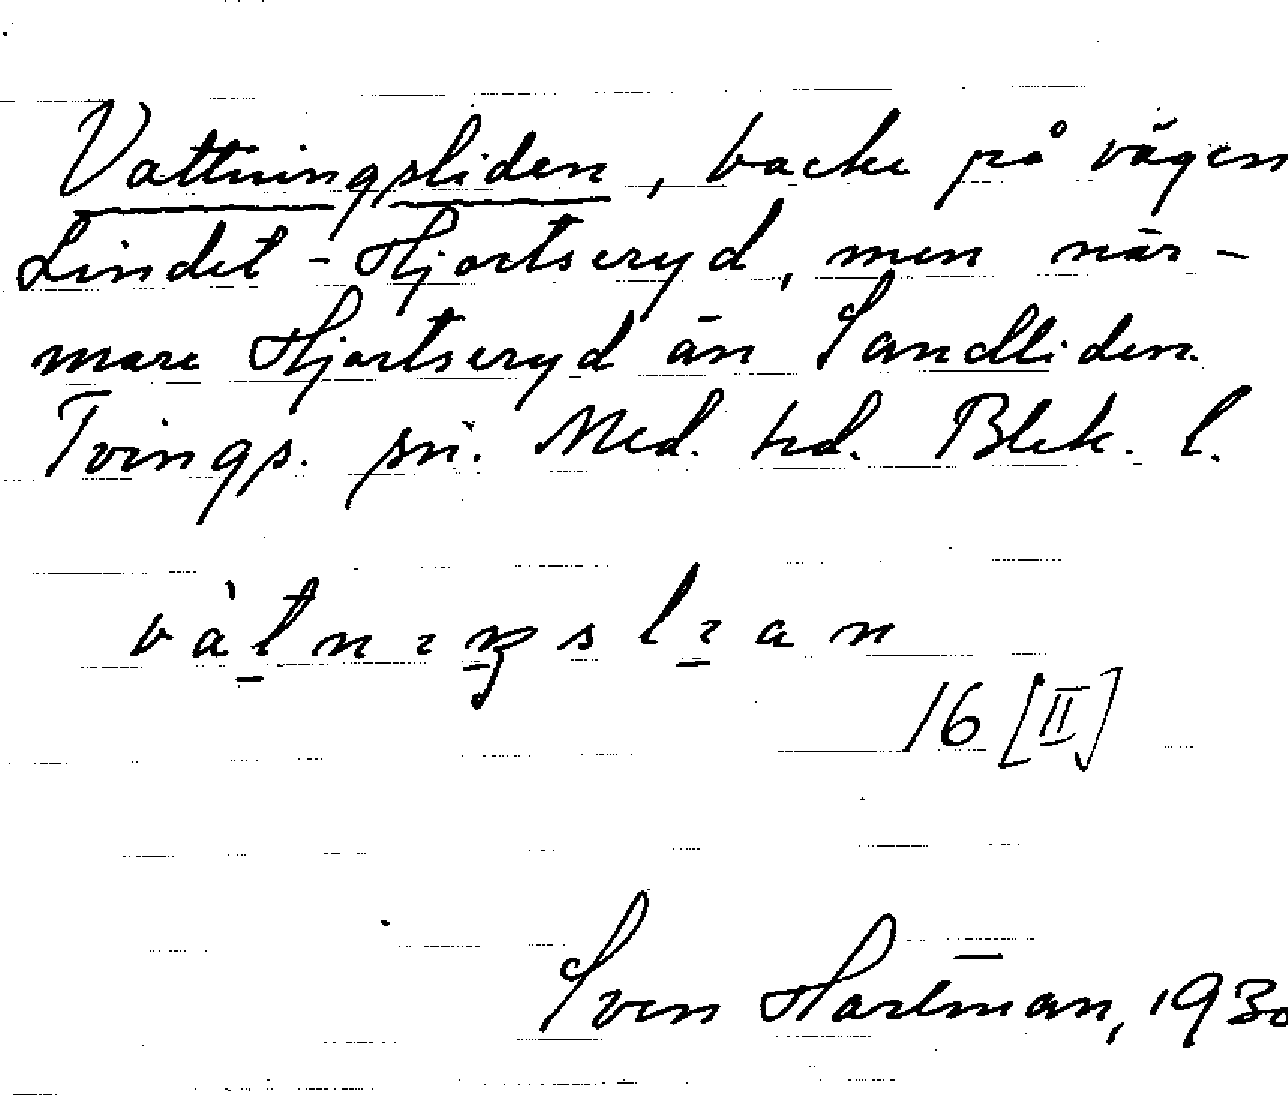 Vattningsliden, backe på vägen
Lindet - Hjortseryd, men när-
mare Hjortseryd än Sandliden.
Tvings. sn. Med. hd. Blek. l.
16 [II]
Sven Hartman, 1930